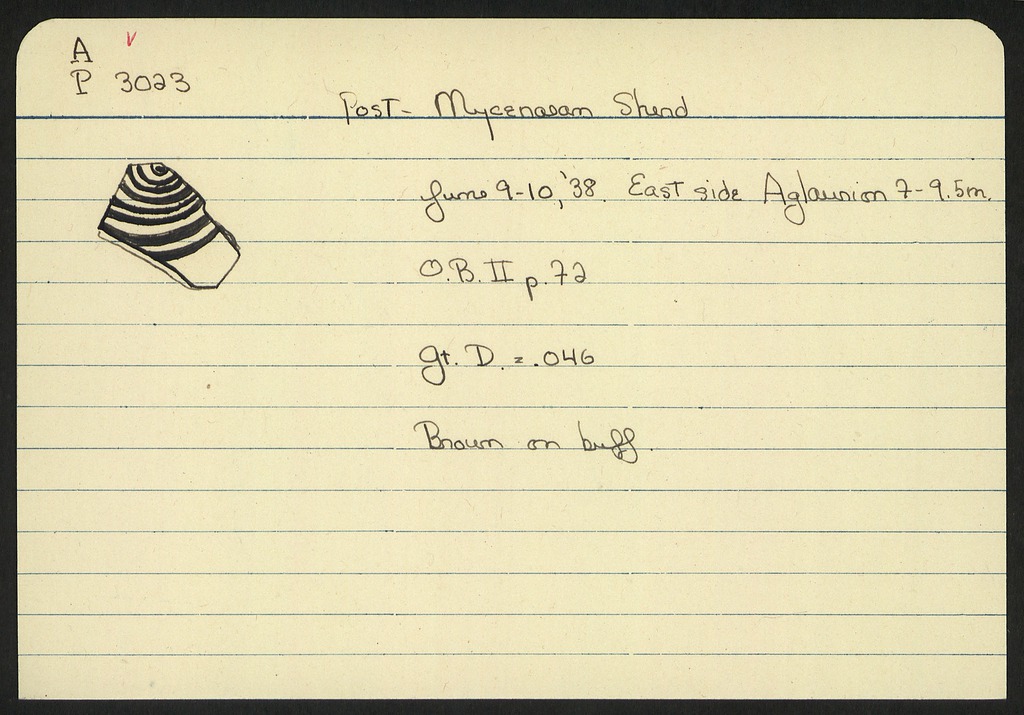 A
P 3023
Post- Mycenaean Sherd
June 9-10, '38. East side Aglaurion 7-9.5m.
O.B. II p. 72
Gt. D. = .046
Brown on buff.